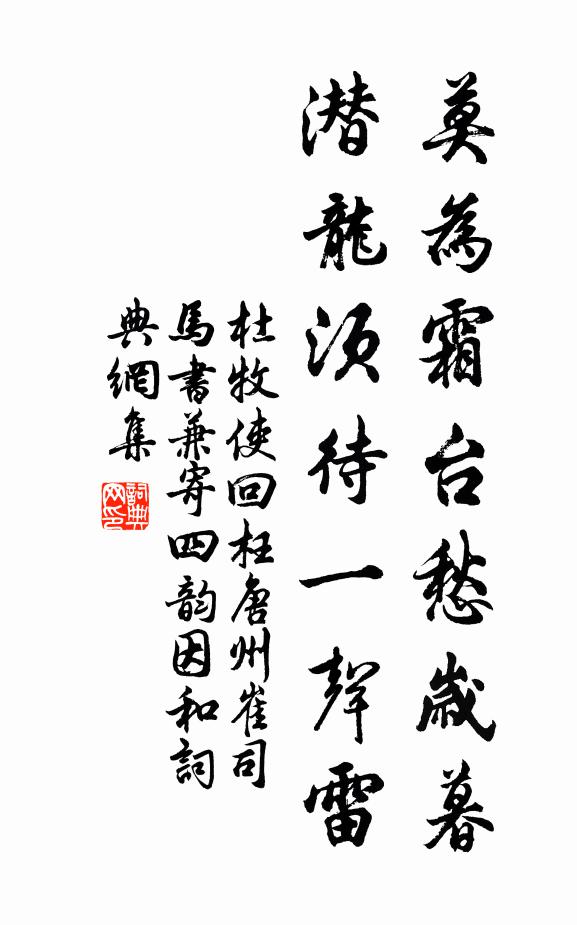 莫為霜台愁歲暮
潛龍須待一聲雷
杜牧使回枉唐州崔司
馬書兼寄四韵因和詞
典網集
詞典
网印